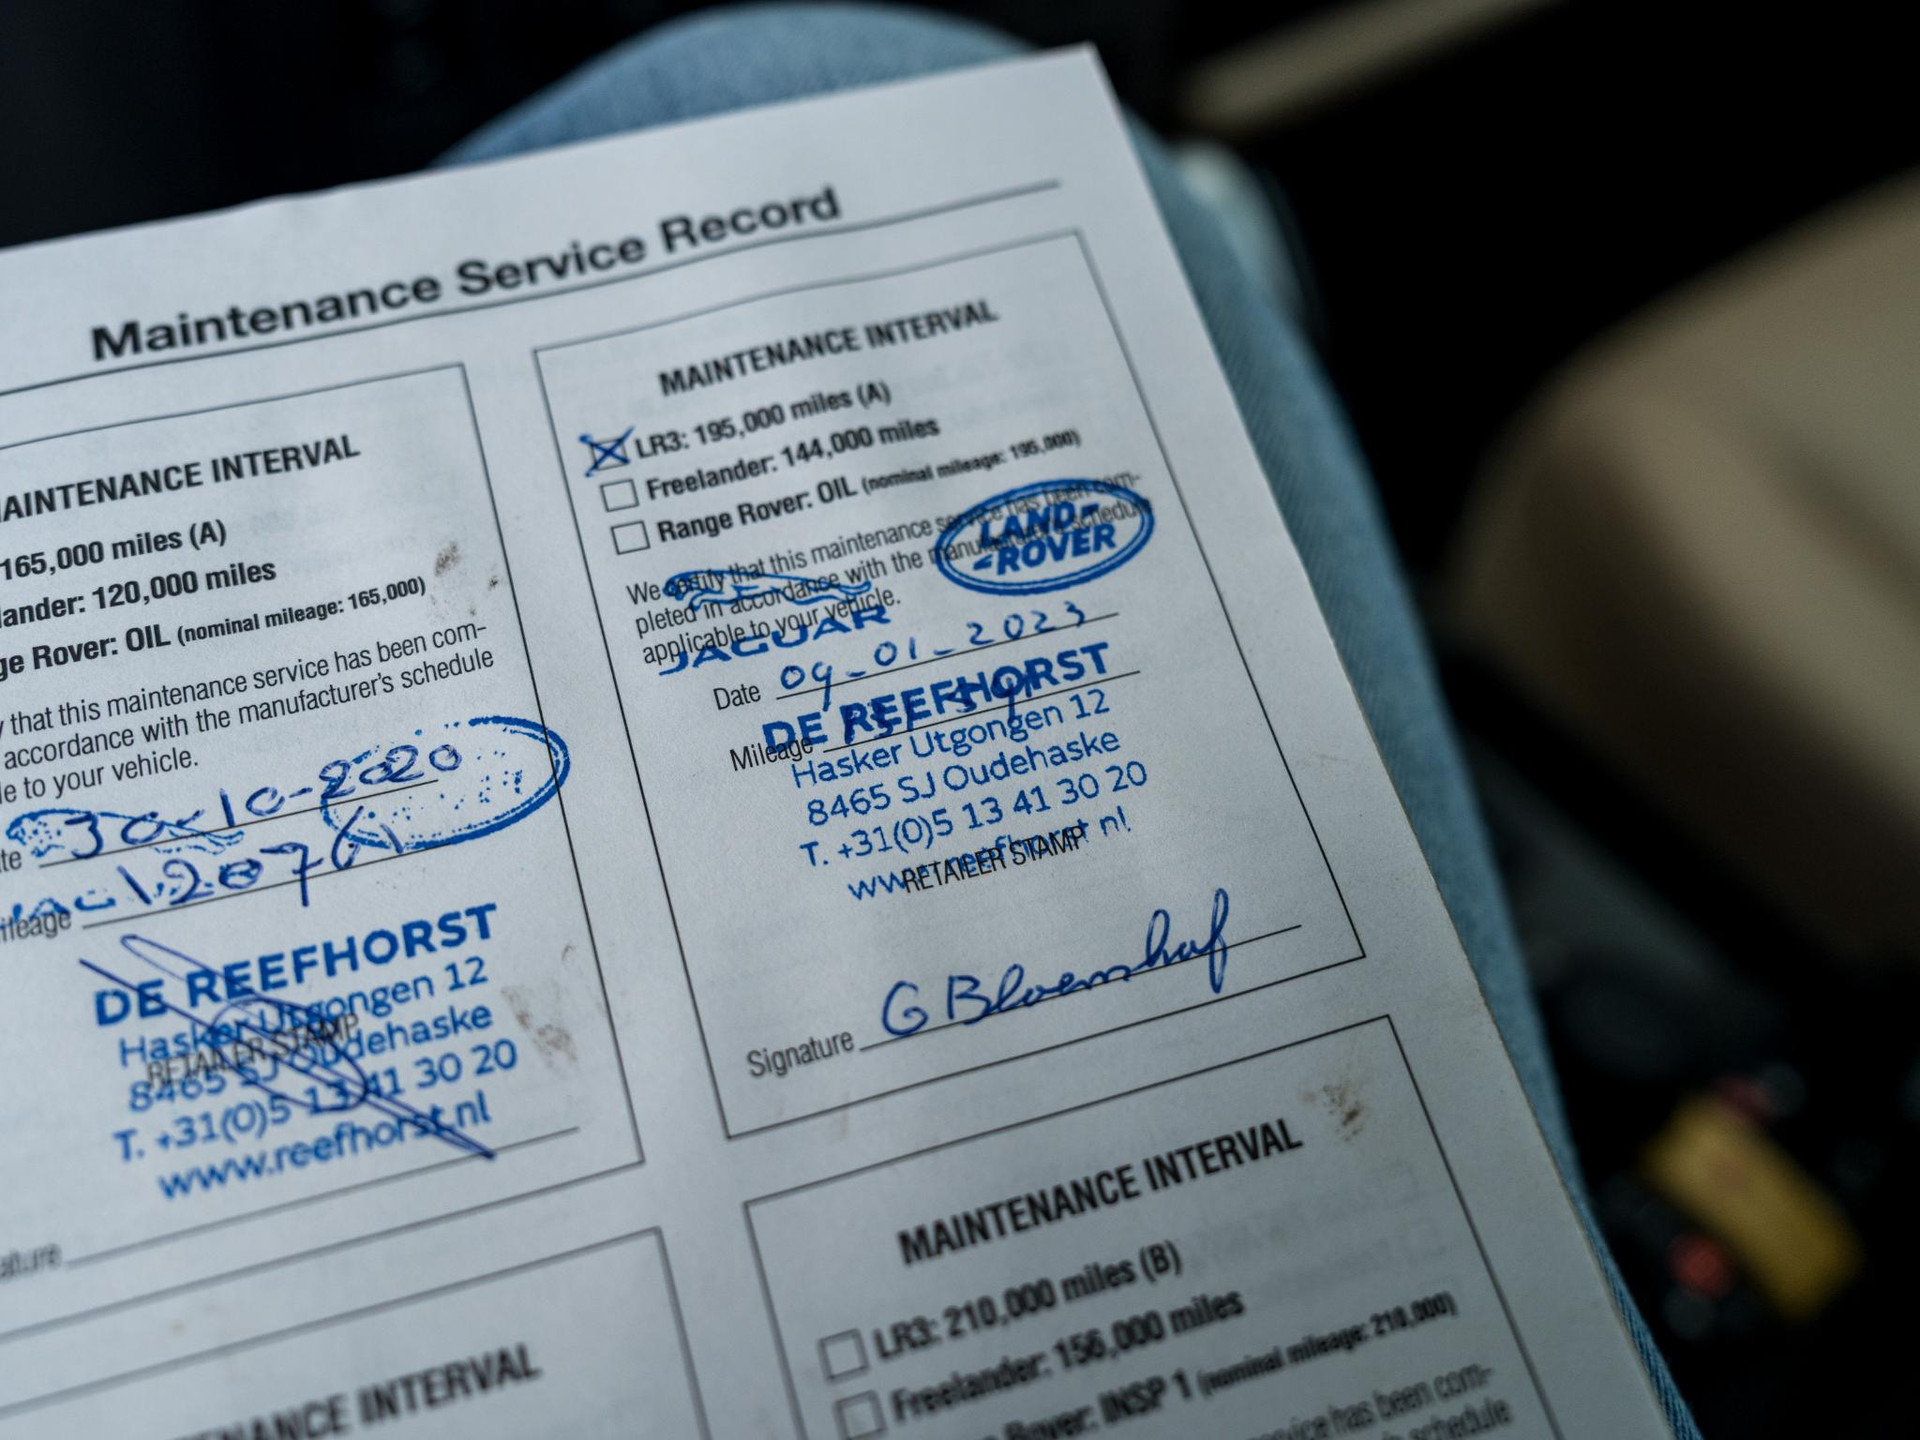 Maintenance Service Record
MAINTENANCE INTERVAL
165,000 miles (A)
lander: 120,000 miles
ge Rover: OIL (nominal mileage: 165,000)
y that this maintenance service has been com-
accordance with the manufacturer's schedule
le to your vehicle.
te 30-10-2020
ileage
DE REEFHORST
Hasker Utgongen 12
RETAILER STAMP
8465 SJ Oudehaske
T. +31(0)5 13 41 30 20
www.reefhorst.nl
ature
NANCE INTERVAL
MAINTENANCE INTERVAL
LR3: 195,000 miles (A)
Freelander: 144,000 miles
Range Rover: OIL (nominal mileage: 195,000)
We certify that this maintenance service has been com-
pleted in accordance with the manufacturer's schedule
applicable to your vehicle.
LAND-
-ROVER
JAGUAR
Date 09-01-2023
DE REEFHORST
Mileage
Hasker Utgongen 12
8465 SJ Oudehaske
T. +31(0)5 13 41 30 20
www.reefhorst.nl
RETAILER STAMP
Signature G Bloemhof
MAINTENANCE INTERVAL
LR3: 210,000 miles (B)
Freelander: 156,000 miles
Rover: INSP 1 (nominal mileage: 210,000)
service has been com-
schedule